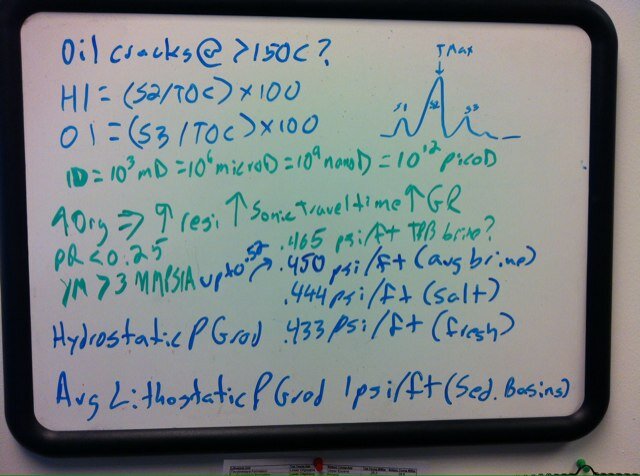 Oil cracks @ >150C?
TMax
HI = (S2/TOC) × 100
S1 S2 S3
OI = (S3/TOC) × 100
1D = 10³ mD = 10⁶ microD = 10⁹ nanoD = 10¹² picoD
↑Org ⇒ ↑ resi ↑ Sonic Travel time ↑ GR
PR < 0.25
.465 psi/ft TPB brine?
YM > 3 MMPSIA up to .52
.450 psi/ft (avg brine)
.444 psi/ft (salt)
Hydrostatic P Grad .433 psi/ft (fresh)
Avg Lithostatic P Grad 1 psi/ft (Sed. Basins)